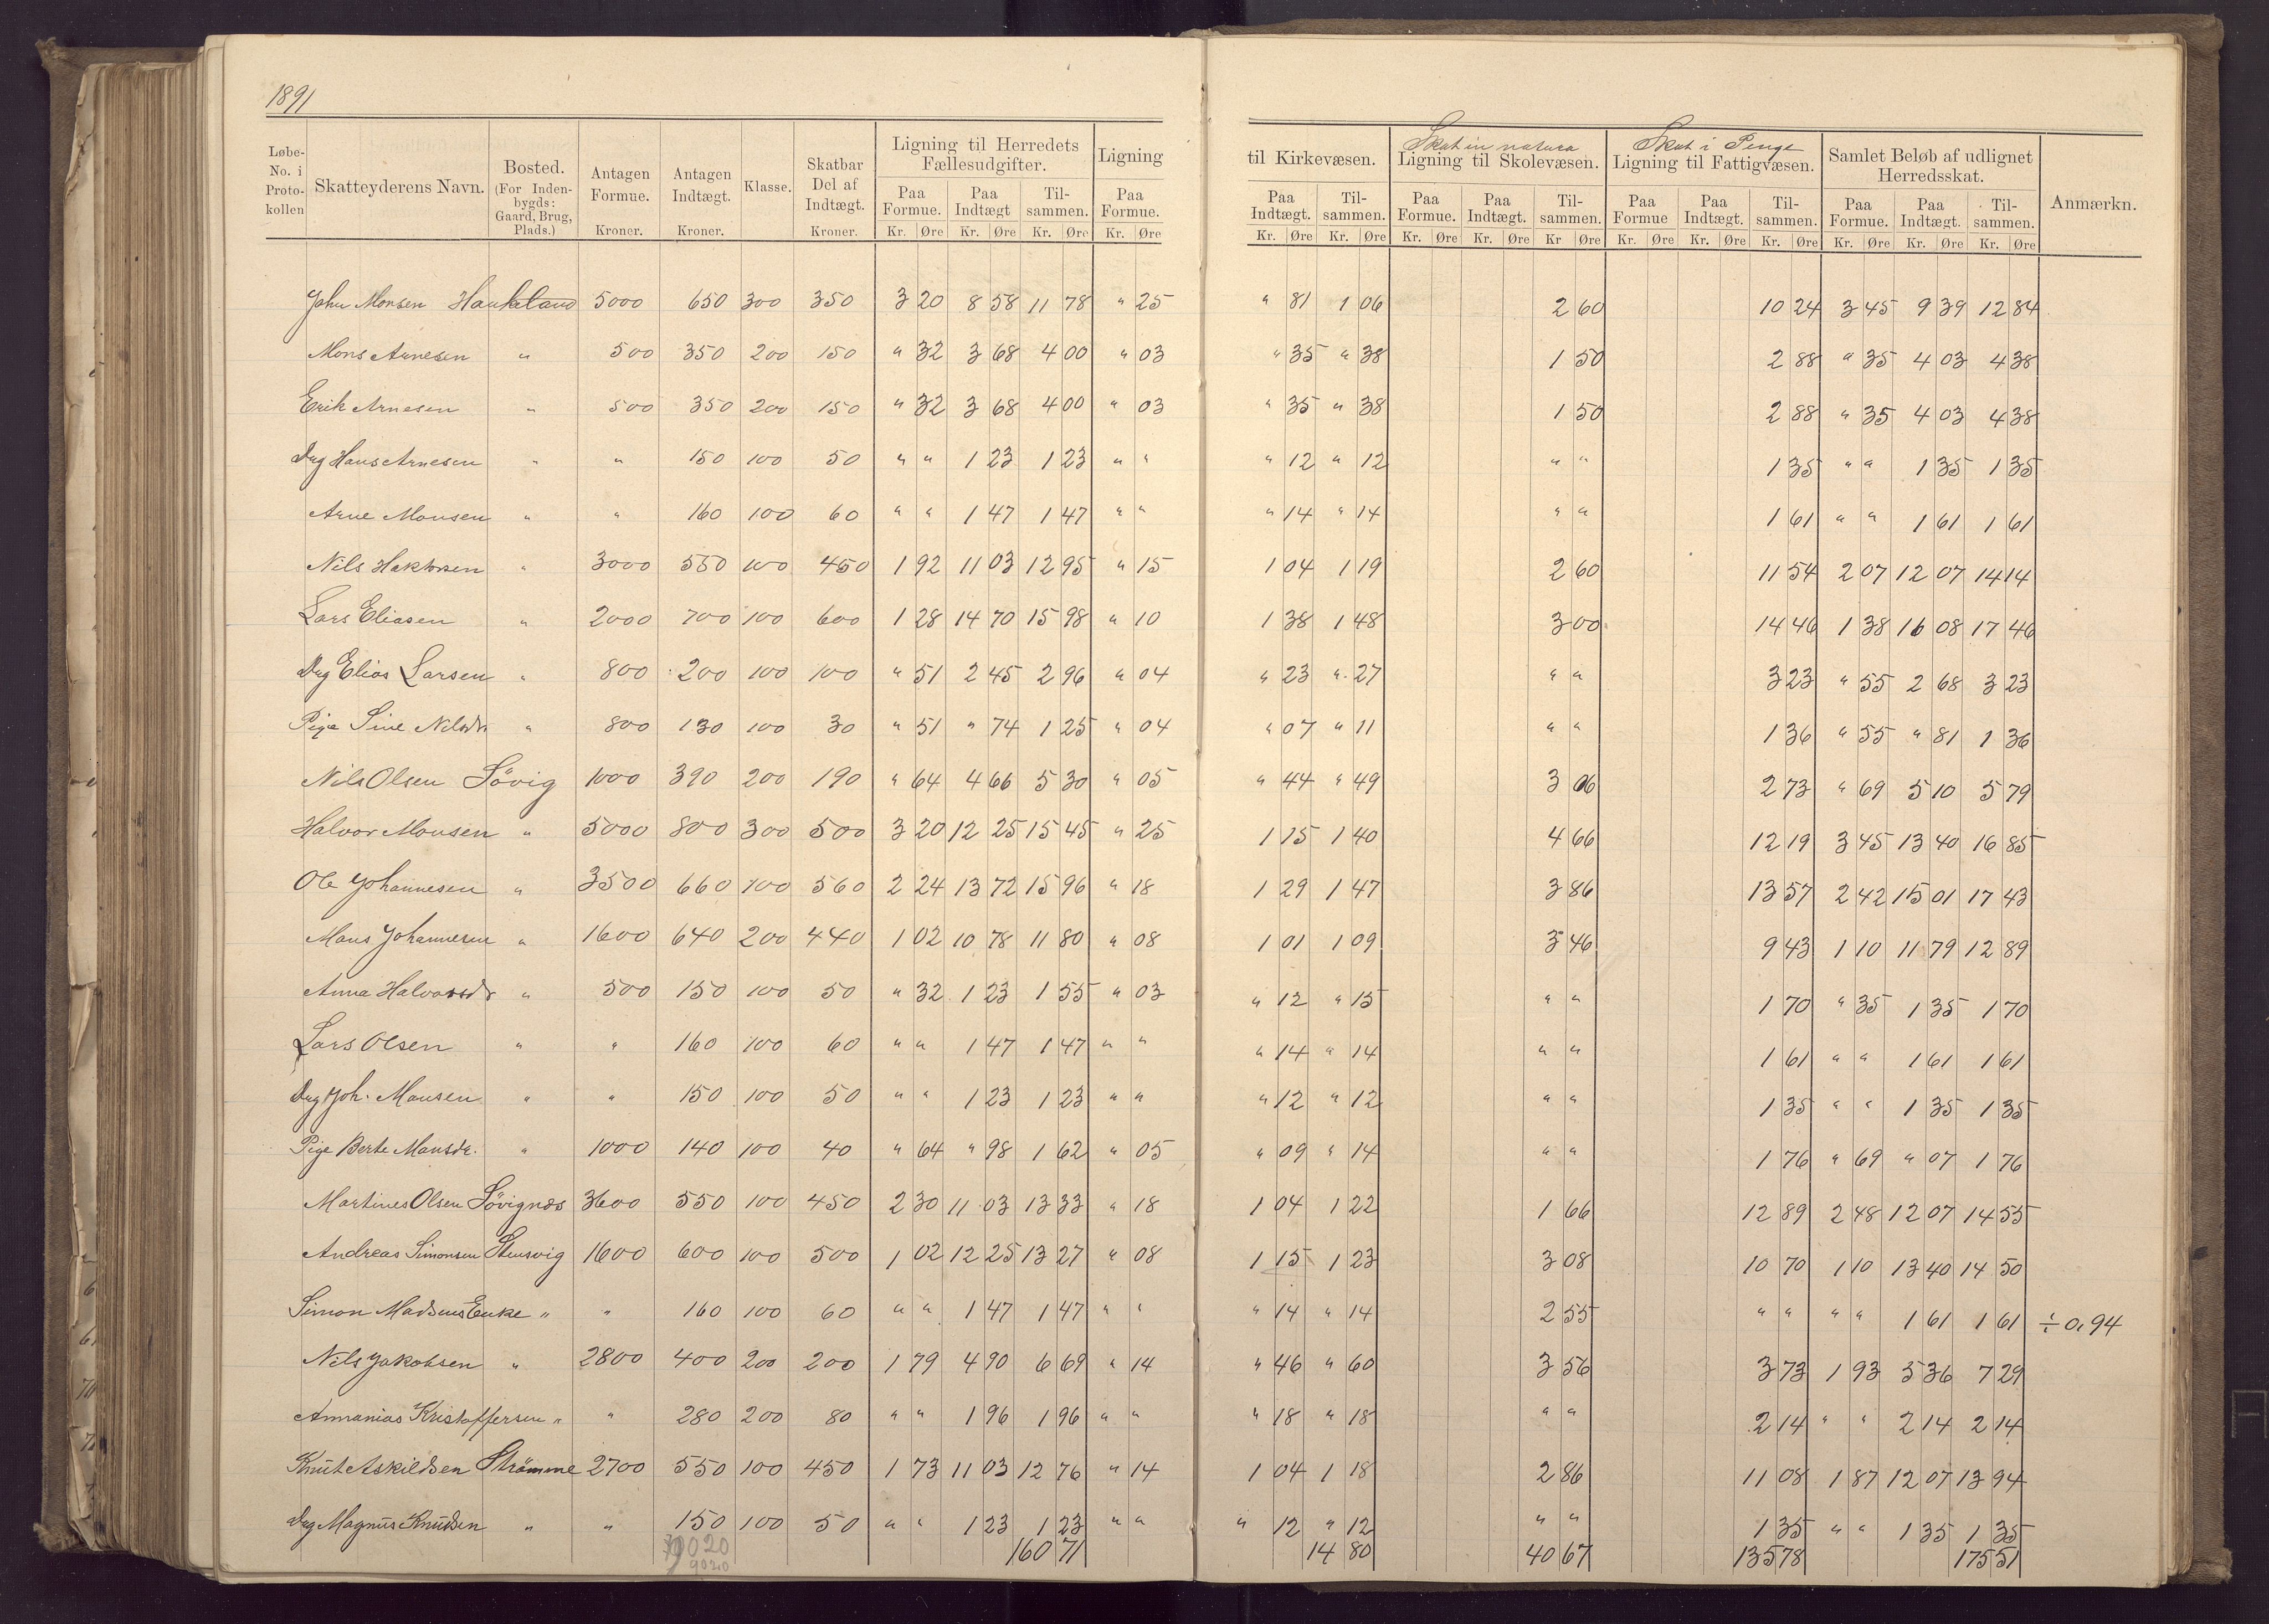 1891
Løbe-No. i Proto-kollen | Skatteyderens Navn. | Bosted. (For Inden-bygds: Gaard, Brug, Plads.) | Antagen Formue. Kroner. | Antagen Indtægt. Kroner. | Klasse. | Skatbar Del af Indtægt. Kroner. | Ligning til Herredets Fællesudgifter. Paa Formue. Kr. Øre | Paa Indtægt Kr. Øre | Til-sammen. Kr. Øre | Ligning til Kirkevæsen. Paa Formue. Kr. Øre | Paa Indtægt. Kr. Øre | Til-sammen. Kr. Øre | Skat in natura Ligning til Skolevæsen. Paa Formue. Kr. Øre | Paa Indtægt. Kr. Øre | Til-sammen. Kr Øre | Skat i Penge Ligning til Fattigvæsen. Paa Formue Kr. Øre | Paa Indtægt. Kr. Øre | Til-sammen. Kr. Øre | Samlet Beløb af udlignet Herredsskat. Paa Formue. Kr. Øre | Paa Indtægt. Kr. Øre | Til-sammen. Kr. Øre | Anmærkn.
John Monsen Haukeland 5000 650 300 350 3 20 8 58 11 78 " 25 " 81 1 06 2 60 10 24 3 45 9 39 12 84
Mons Arnesen " 500 350 200 150 " 32 3 68 4 00 " 03 " 35 " 38 1 50 2 88 " 35 4 03 4 38
Erik Arnesen " 500 350 200 150 " 32 3 68 4 00 " 03 " 35 " 38 1 50 2 88 " 35 4 03 4 38
Dug Hans Arnesen " " 150 100 50 " " 1 23 1 23 " " " 12 " 12 " " 1 35 " " 1 35 1 35
Arne Monsen " " 160 100 60 " " 1 47 1 47 " " " 14 " 14 " " 1 61 " " 1 61 1 61
Nils Haktorsen " 3000 550 100 450 1 92 11 03 12 95 " 15 1 04 1 19 2 60 11 54 2 07 12 07 14 14
Lars Eliasen " 2000 700 100 600 1 28 14 70 15 98 " 10 1 38 1 48 3 00 14 46 1 38 16 08 17 46
Dug Elias Larsen " 800 200 100 100 " 51 2 45 2 96 " 04 " 23 " 27 " " 3 23 " 55 2 68 3 23
Pige Sine Nilsdr " 800 130 100 30 " 51 " 74 1 25 " 04 " 07 " 11 " " 1 36 " 55 " 81 1 36
Nils Olsen Sövig 1000 390 200 190 " 64 4 66 5 30 " 05 " 44 " 49 3 06 2 73 " 69 5 10 5 79
Halvor Monsen " 5000 800 300 500 3 20 12 25 15 45 " 25 1 15 1 40 4 66 12 19 3 45 13 40 16 85
Ole Johannesen " 3500 660 100 560 2 24 13 72 15 96 " 18 1 29 1 47 3 86 13 57 2 42 15 01 17 43
Mons Johannesen " 1600 640 200 440 1 02 10 78 11 80 " 08 1 01 1 09 3 46 9 43 1 10 11 79 12 89
Anna Halvorsdr " 500 150 100 50 " 32 1 23 1 55 " 03 " 12 " 15 " " 1 70 " 35 1 35 1 70
Lars Olsen " " 160 100 60 " " 1 47 1 47 " " " 14 " 14 " " 1 61 " " 1 61 1 61
Dug Joh. Monsen " " 150 100 50 " " 1 23 1 23 " " " 12 " 12 " " 1 35 " " 1 35 1 35
Pige Berte Monsdr. " 1000 140 100 40 " 64 " 98 1 62 " 05 " 09 " 14 " " 1 76 " 69 " 07 1 76
Martines Olsen Sövignæs 3600 550 100 450 2 30 11 03 13 33 " 18 1 04 1 22 1 66 12 89 2 48 12 07 14 55
Andreas Simonsen Stensvig 1600 600 100 500 1 02 12 25 13 27 " 08 1 15 1 23 3 08 10 70 1 10 13 40 14 50
Simon Madsens Enke " " 160 100 60 " " 1 47 1 47 " " " 14 " 14 2 55 " " " " 1 61 1 61 ÷ 0,94
Nils Jakobsen " 2800 400 200 200 1 79 4 90 6 69 " 14 " 46 " 60 3 56 3 73 1 93 5 36 7 29
Annanias Kristoffersen " " 280 200 80 " " 1 96 1 96 " " " 18 " 18 " " 2 14 " " 2 14 2 14
Knut Askildsen Strömme 2700 550 100 450 1 73 11 03 12 76 " 14 1 04 1 18 2 86 11 08 1 87 12 07 13 94
Dug Magnus Knudsen " " 150 100 50 " " 1 23 1 23 " " " 12 " 12 " " 1 35 " " 1 35 1 35
160 71 14 80 40 67 135 78 175 51
9020